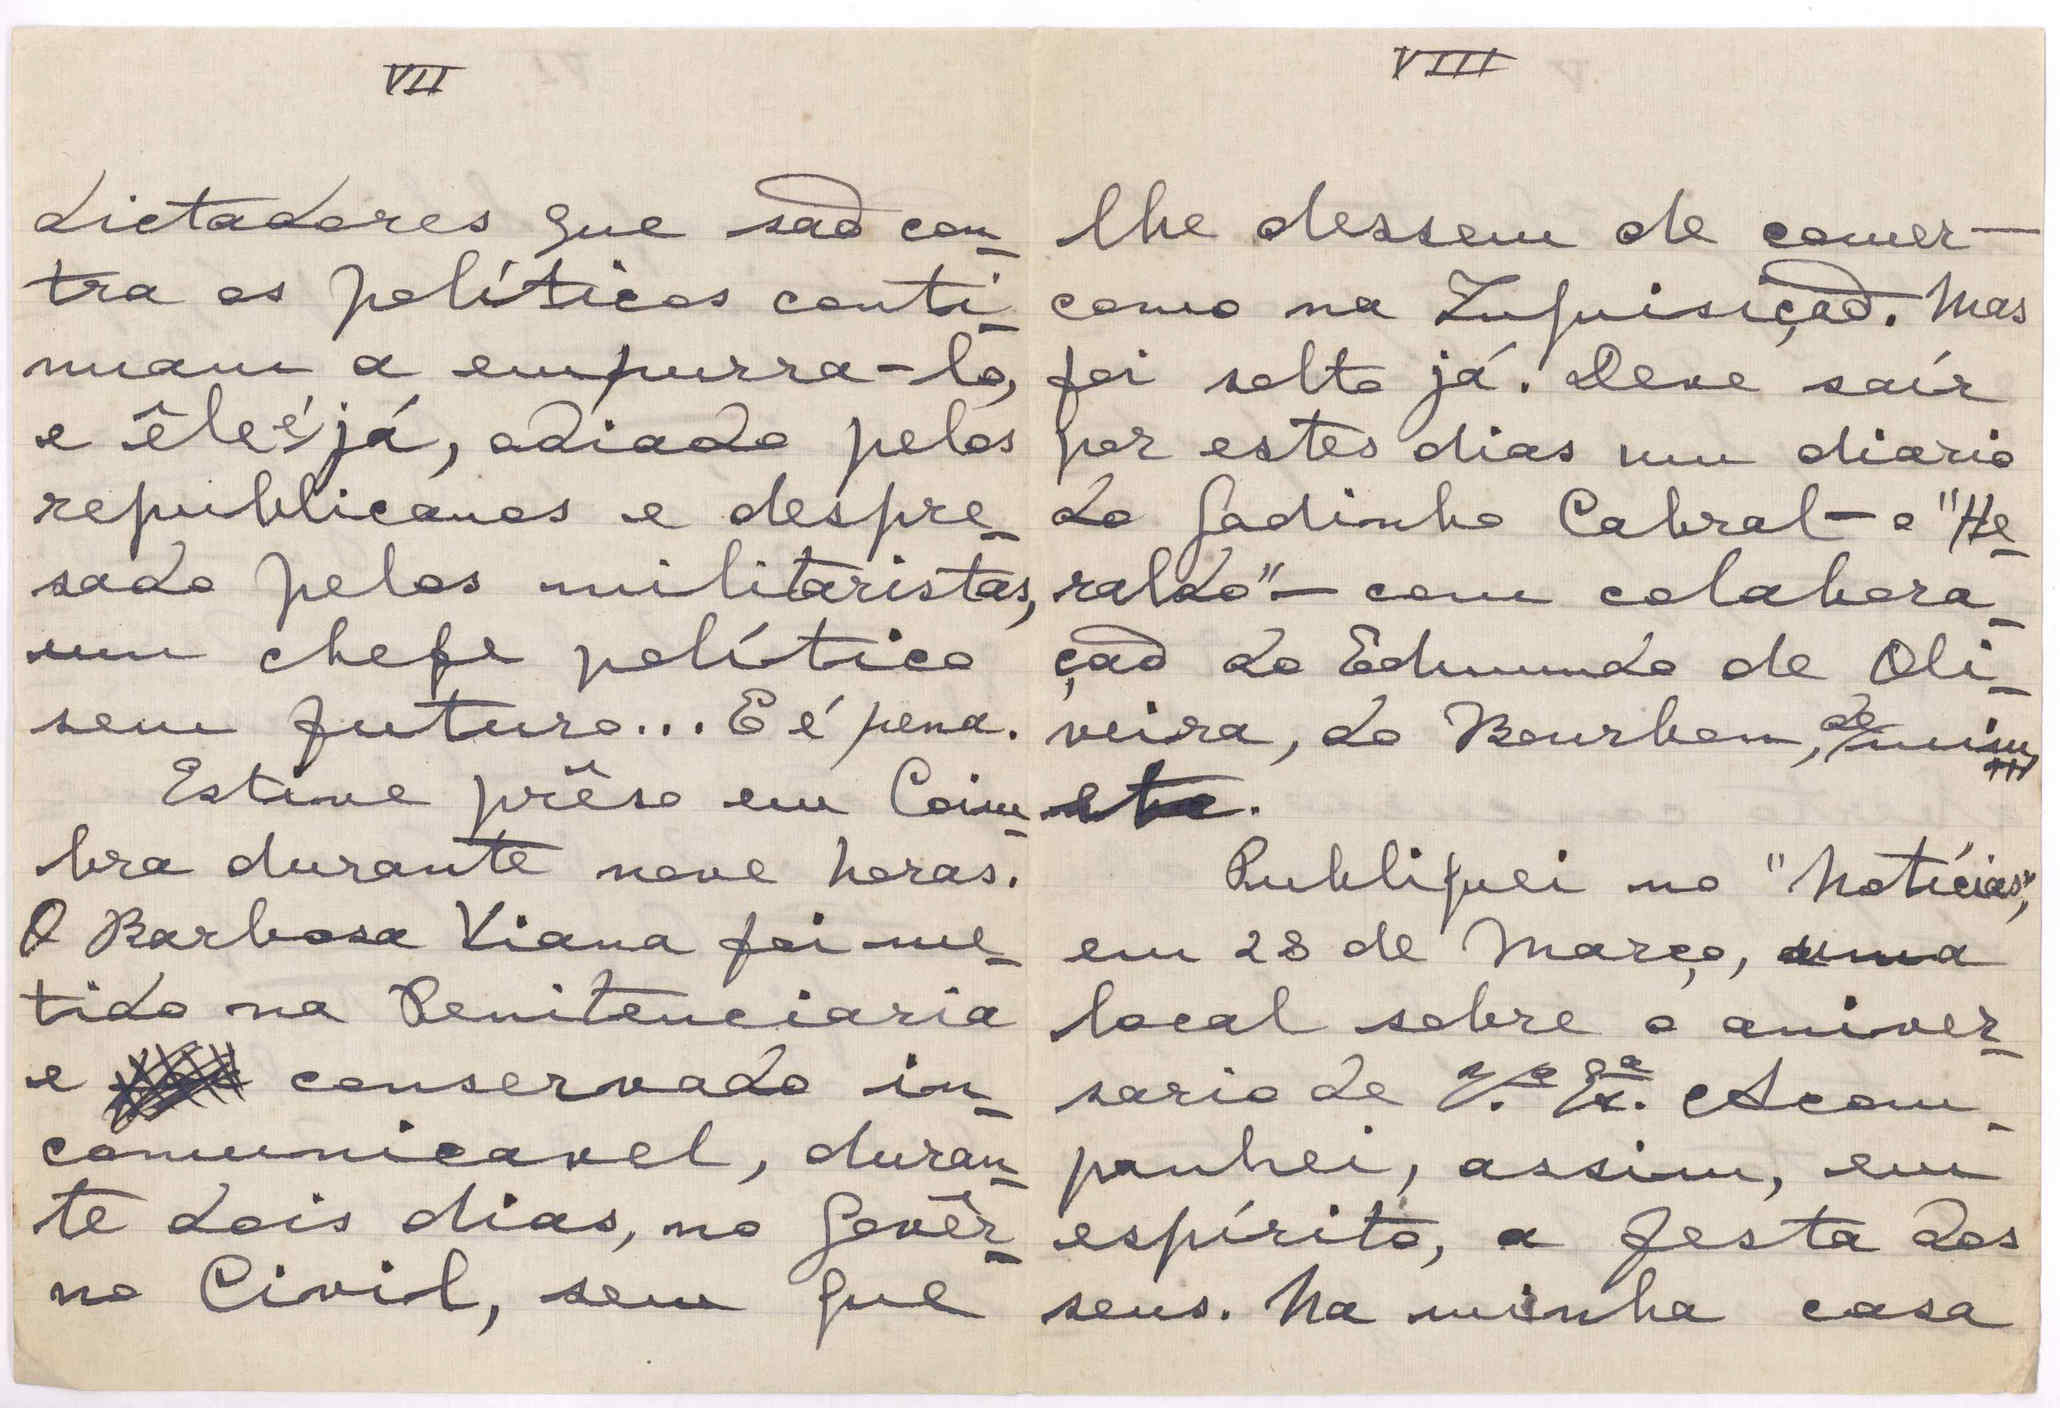 VII
dictadores que são con-
tra os políticos conti-
nuam a empurra-lo,
e êle é já, odiado pelos
republicanos e despre-
sado pelos militaristas,
um chefe político
sem futuro... E é pena.
Estive prêso em Coim-
bra durante nove horas.
O Barbosa Viana foi me-
tido na Penitenciaria
e conservado in-
comunicavel, duran-
te dois dias, no Govêr-
no Civil, sem que
VIII
lhe dessem de comer —
como na Inquisição. Mas
foi solto já. Deve saír
por estes dias um diario
do Godinho Cabral — o "He-
raldo" — com colabora-
ção do Edmundo de Oli-
veira, do Bourbon, de mim
etc.
Publiquei no "Notícias",
em 28 de Março, uma
local sobre o aniver-
sario de V.ª Ex.ª Acom-
panhei, assim, em
espírito, a festa dos
seus. Na minha casa